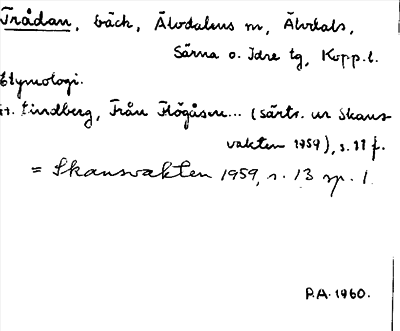 Trådan, bäck, Älvdalens m, Älvdals,
Särna o. Idre tg, Kopp.l.
Etymologi.
St. Lindberg, Från Högåsen... (särtr. ur Skans-
vakten 1959), s. 11 f.
= Skansvakten 1959, s. 13 sp. 1.
P.A. 1960.